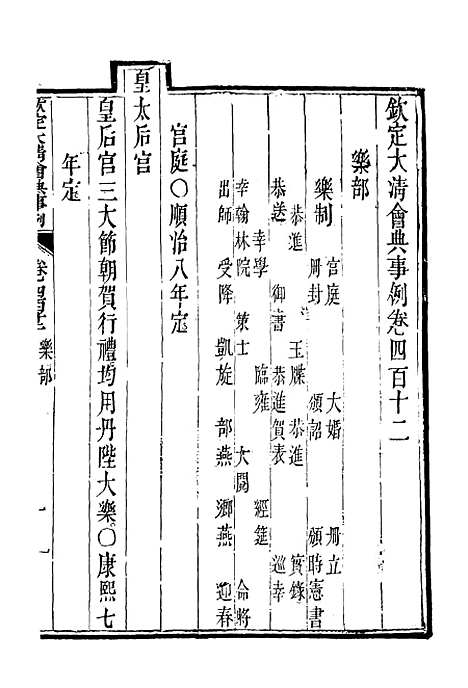 欽定大清會典事例卷四百十二
樂部
樂制 宮庭 大婚 冊立
冊封 頒詔 頒時憲書
恭進 玉牒 恭進 實錄
恭送 御書 恭進賀表 巡幸
幸學 臨雍 經筵
幸翰林院 策士 大閱 命將
出師 受降 凱旋 部燕 鄉燕 迎春
宮庭〇順治八年定
皇太后宮
皇后宮三大節朝賀行禮均用丹陛大樂〇康熙七
年定
欽定大清會典事例 樂部